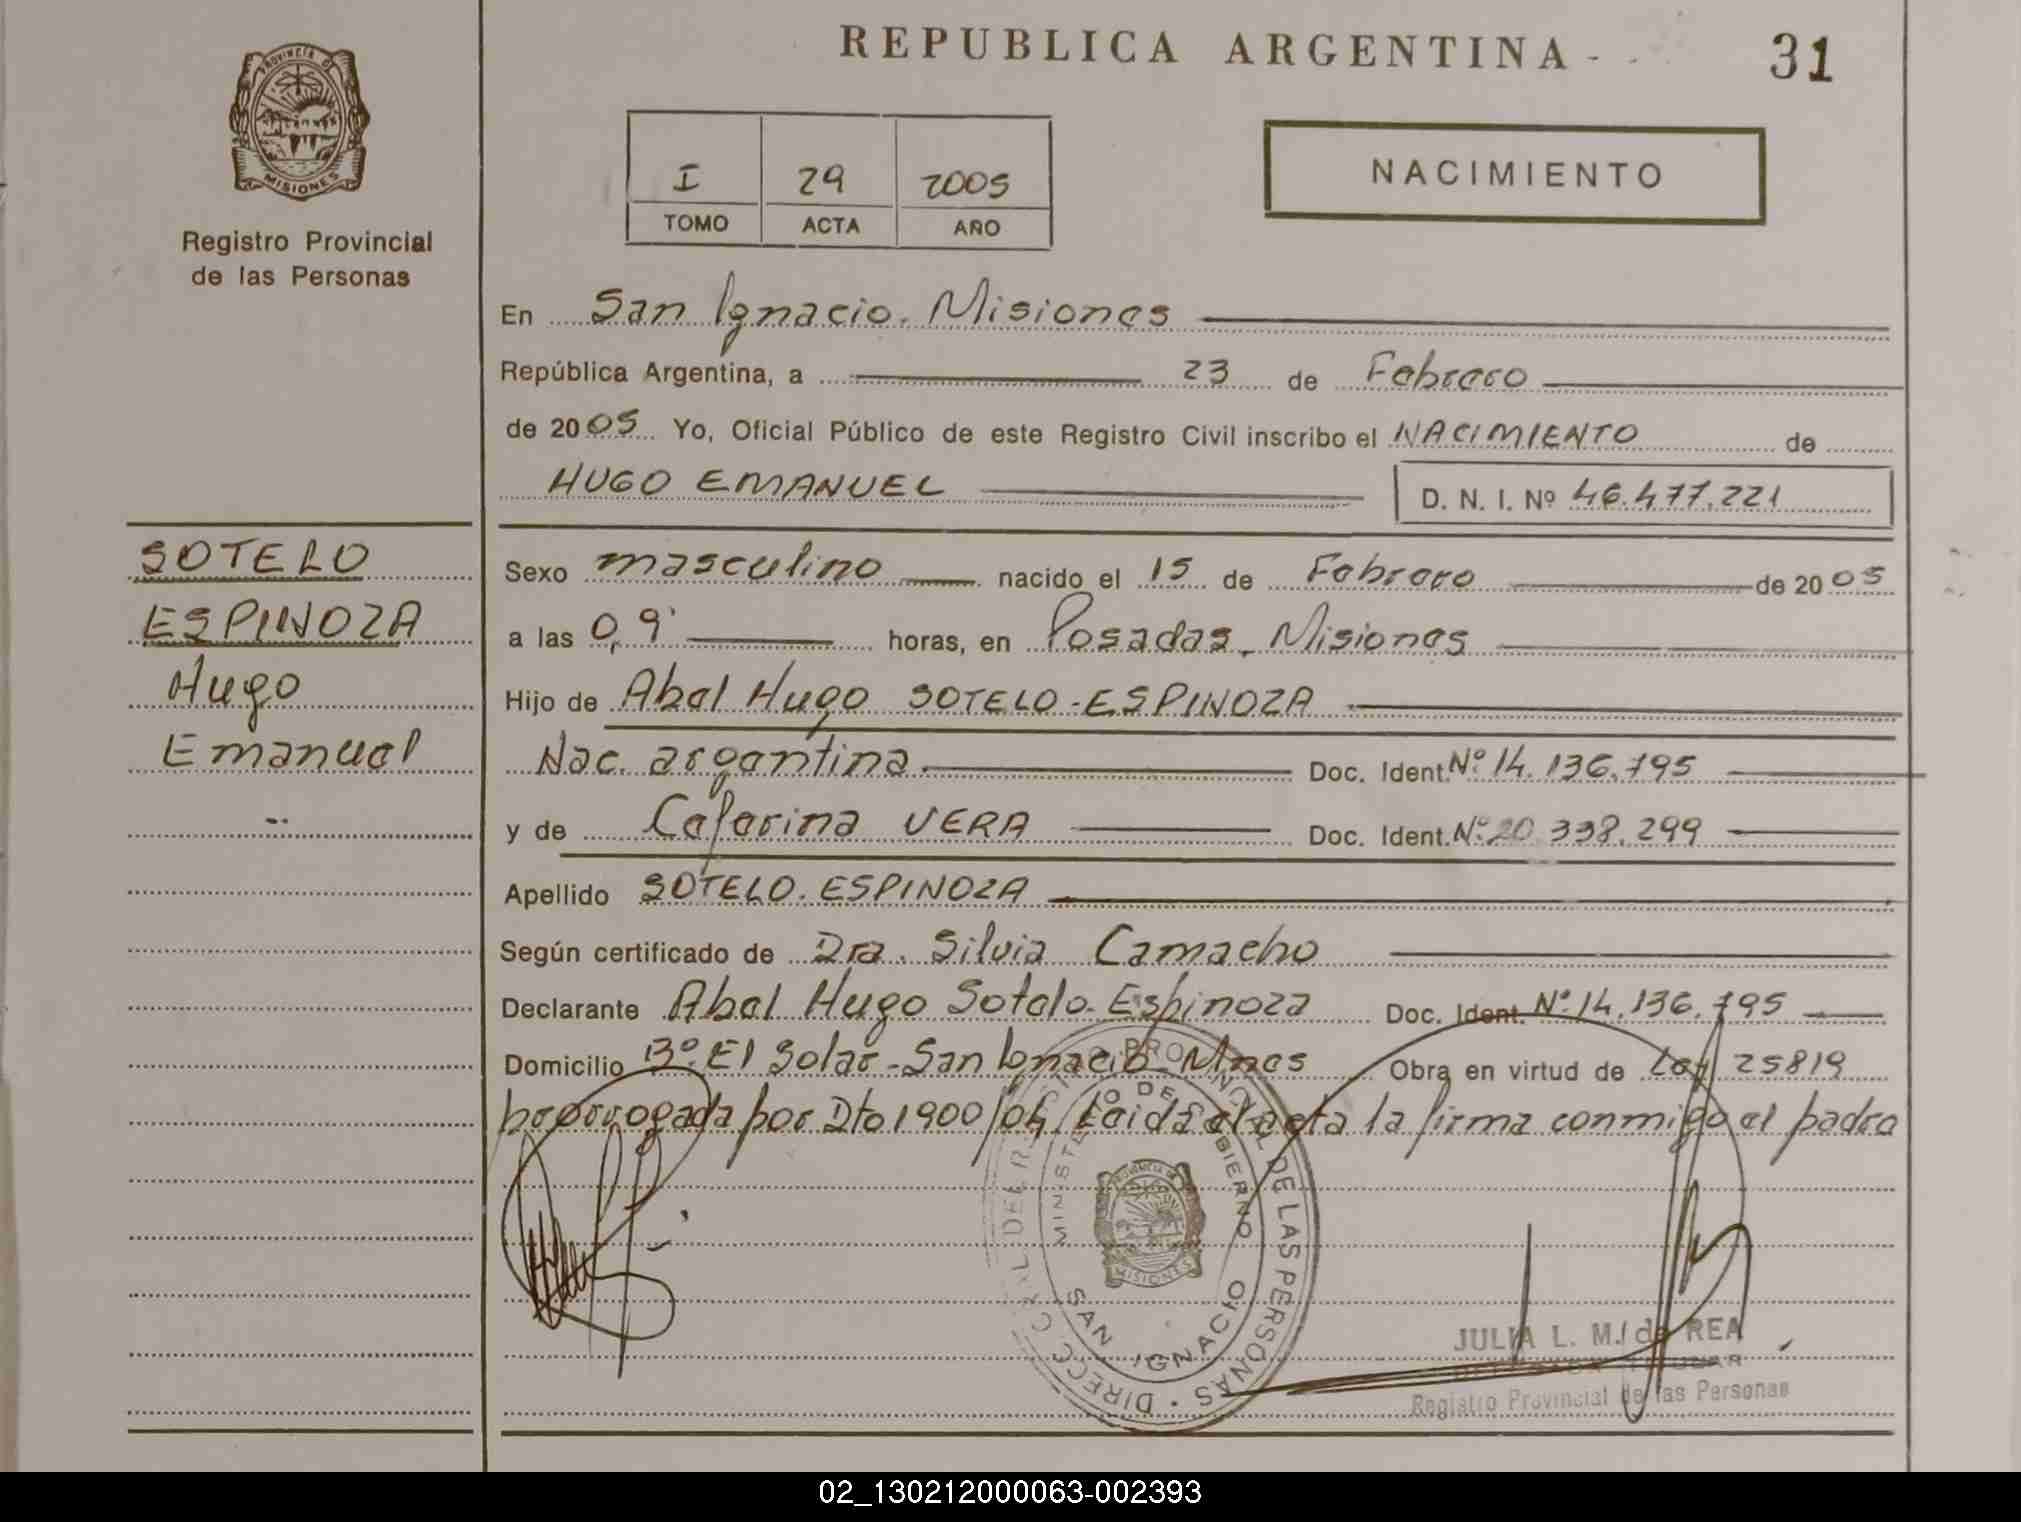 REPUBLICA ARGENTINA
31
PROVINCIA DE
MISIONES
Registro Provincial
de las Personas
I 29 2005
TOMO ACTA AÑO
NACIMIENTO
En San Ignacio. Misiones
República Argentina, a 23 de Febrero
de 2005 Yo, Oficial Público de este Registro Civil inscribo el NACIMIENTO de
HUGO EMANUEL D. N. I. Nº 46.477.221
SOTELO
ESPINOZA
Hugo
Emanuel
Sexo masculino nacido el 15 de Febrero de 2005
a las 0,9' horas, en Posadas, Misiones
Hijo de Abel Hugo SOTELO-ESPINOZA
Nac. argentina Doc. Ident. Nº 14.136.795
y de Ceferina VERA Doc. Ident. Nº 20.338.299
Apellido SOTELO.ESPINOZA
Según certificado de Dra. Silvia Camacho
Declarante Abel Hugo Sotelo-Espinoza Doc. Ident. Nº 14.136.795
Domicilio Bº. El Solar-San Ignacio-Mnes Obra en virtud de Ley 25819
prorrogada por Dto 1900/04. Leida el acta la firma conmigo el padre
DIRECC. GRAL DEL REGISTRO PROVINCIAL DE LAS PERSONAS
MINISTERIO DE GOBIERNO
PROVINCIA DE
MISIONES
SAN IGNACIO
JULIA L. M. de REA
Registro Provincial de las Personas
02_130212000063-002393